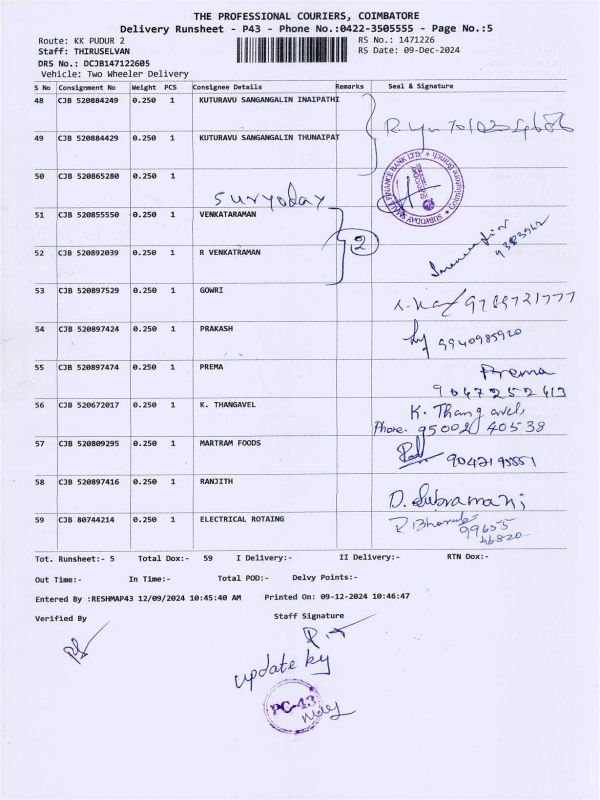 THE PROFESSIONAL COURIERS, COIMBATORE
Delivery Runsheet - P43 - Phone No.:0422-3505555 - Page No.:5
Route: KK PUDUR 2 RS No.: 1471226
Staff: THIRUSELVAN RS Date: 09-Dec-2024
DRS No.: DCJB147122605
Vehicle: Two Wheeler Delivery
S No Consignment No Weight PCS Consignee Details Remarks Seal & Signature
48 CJB 520884249 0.250 1 KUTURAVU SANGANGALIN INAIPATHI
49 CJB 520884429 0.250 1 KUTURAVU SANGANGALIN THUNAIPAT
50 CJB 520865280 0.250 1
suryoday
51 CJB 520855550 0.250 1 VENKATARAMAN
2
52 CJB 520892039 0.250 1 R VENKATRAMAN
53 CJB 520897529 0.250 1 GOWRI 9789721777
54 CJB 520897424 0.250 1 PRAKASH 9940985920
55 CJB 520897474 0.250 1 PREMA Prema
9047252613
56 CJB 520672017 0.250 1 K. THANGAVEL K. Thangavel,
Phone. 95002 40538
57 CJB 520809295 0.250 1 MARTRAM FOODS 9042195551
58 CJB 520897416 0.250 1 RANJITH D. Subramani
59 CJB 80744214 0.250 1 ELECTRICAL ROTAING 99655
46820
Tot. Runsheet:- 5 Total Dox:- 59 I Delivery:- II Delivery:- RTN Dox:-
Out Time:- In Time:- Total POD:- Delvy Points:-
Entered By :RESHMAP43 12/09/2024 10:45:40 AM Printed On: 09-12-2024 10:46:47
Verified By Staff Signature
update by
PC-43